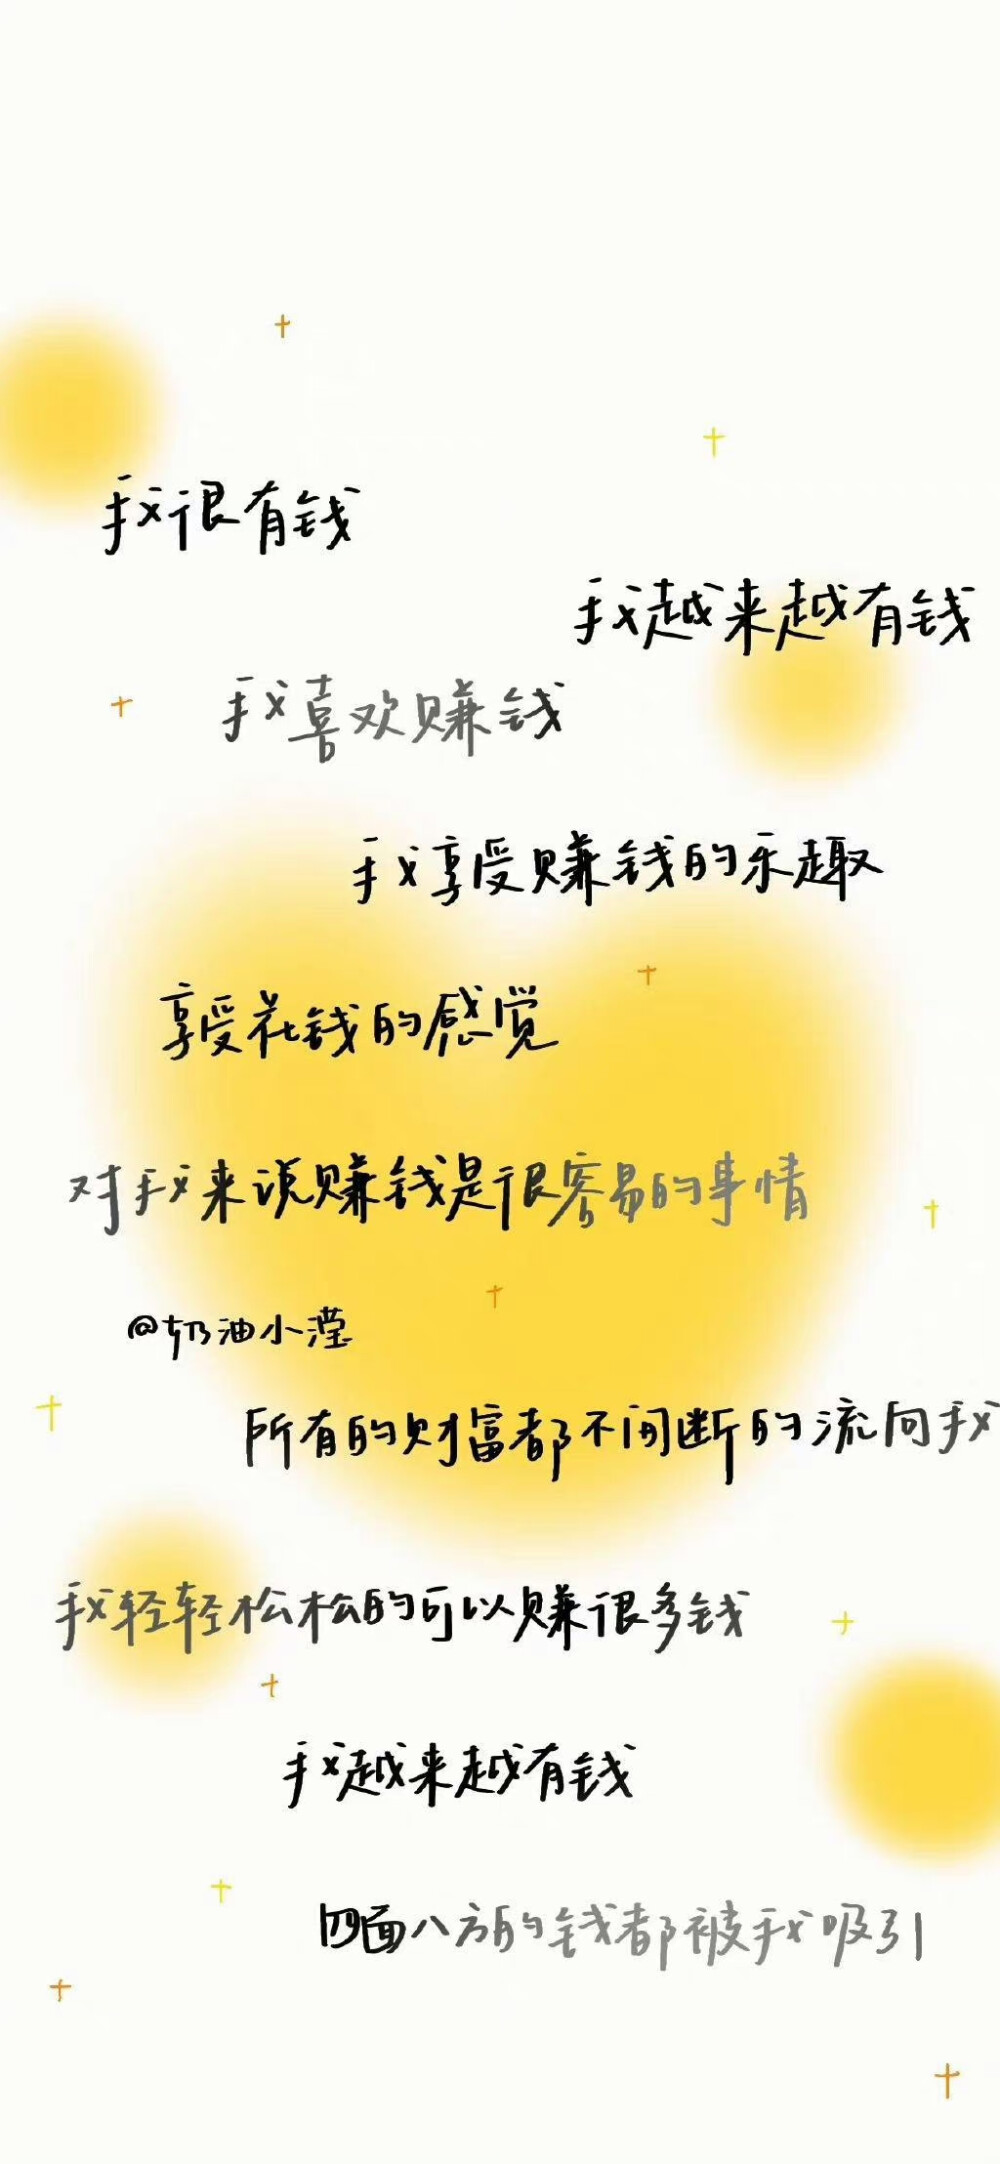 我很有钱
我越来越有钱
我喜欢赚钱
我享受赚钱的乐趣
享受花钱的感觉
对我来说赚钱是很容易的事情
@奶油小滢
所有的财富都不间断的流向我
我轻轻松松的可以赚很多钱
我越来越有钱
四面八方的钱都被我吸引